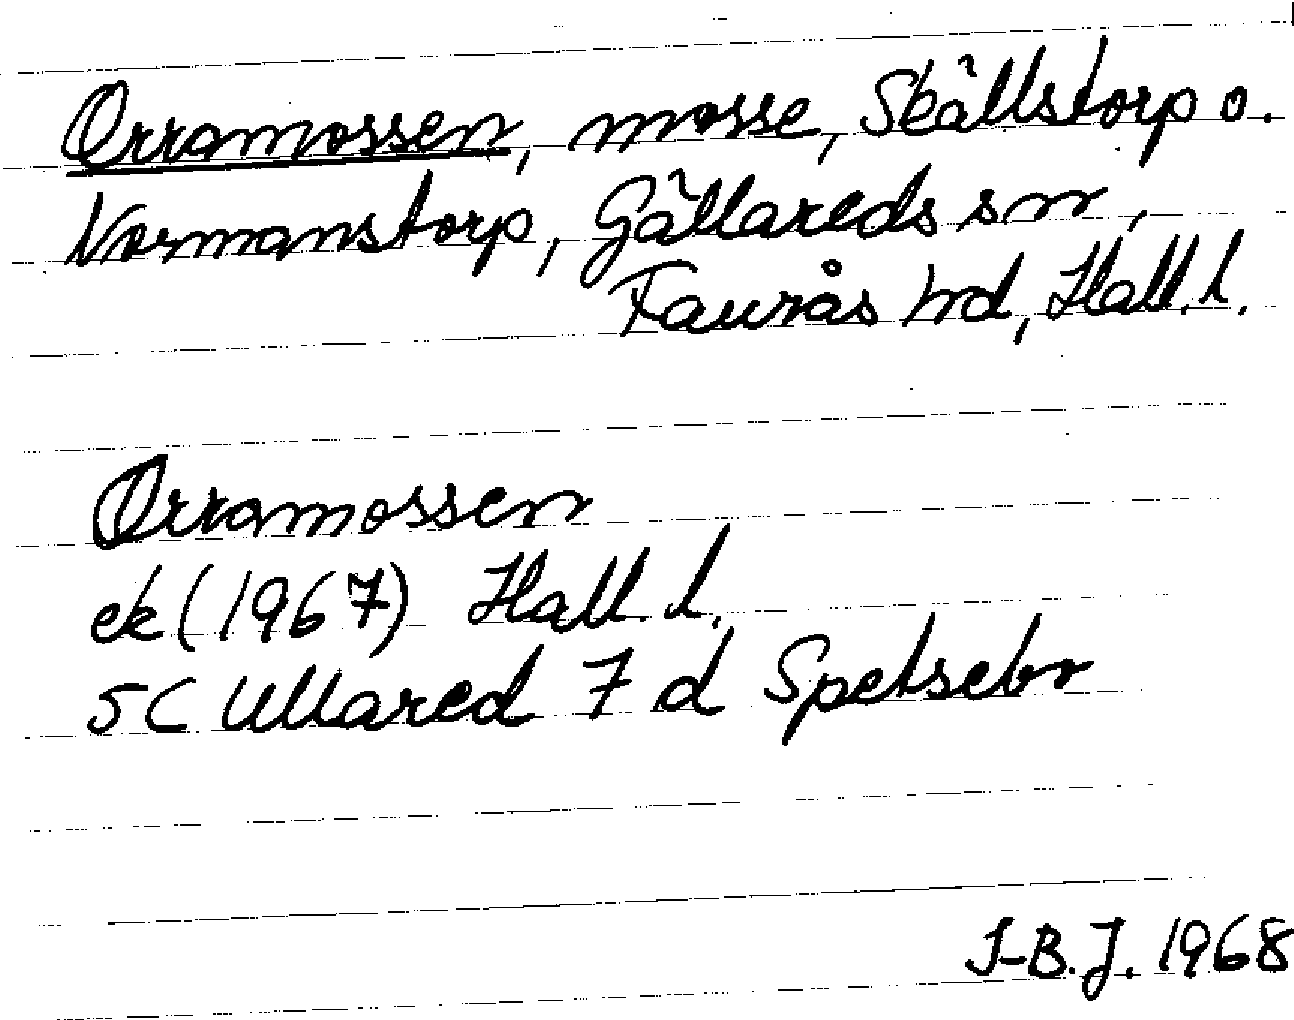 Orramossen, mosse, Skällstorp o.
Normanstorp, Gällareds sn,
Faurås hd, Hall. l.
Orramossen
ek (1967) Hall. l.
5C Ullared 7 d Spetsebr
I-B.J. 1968